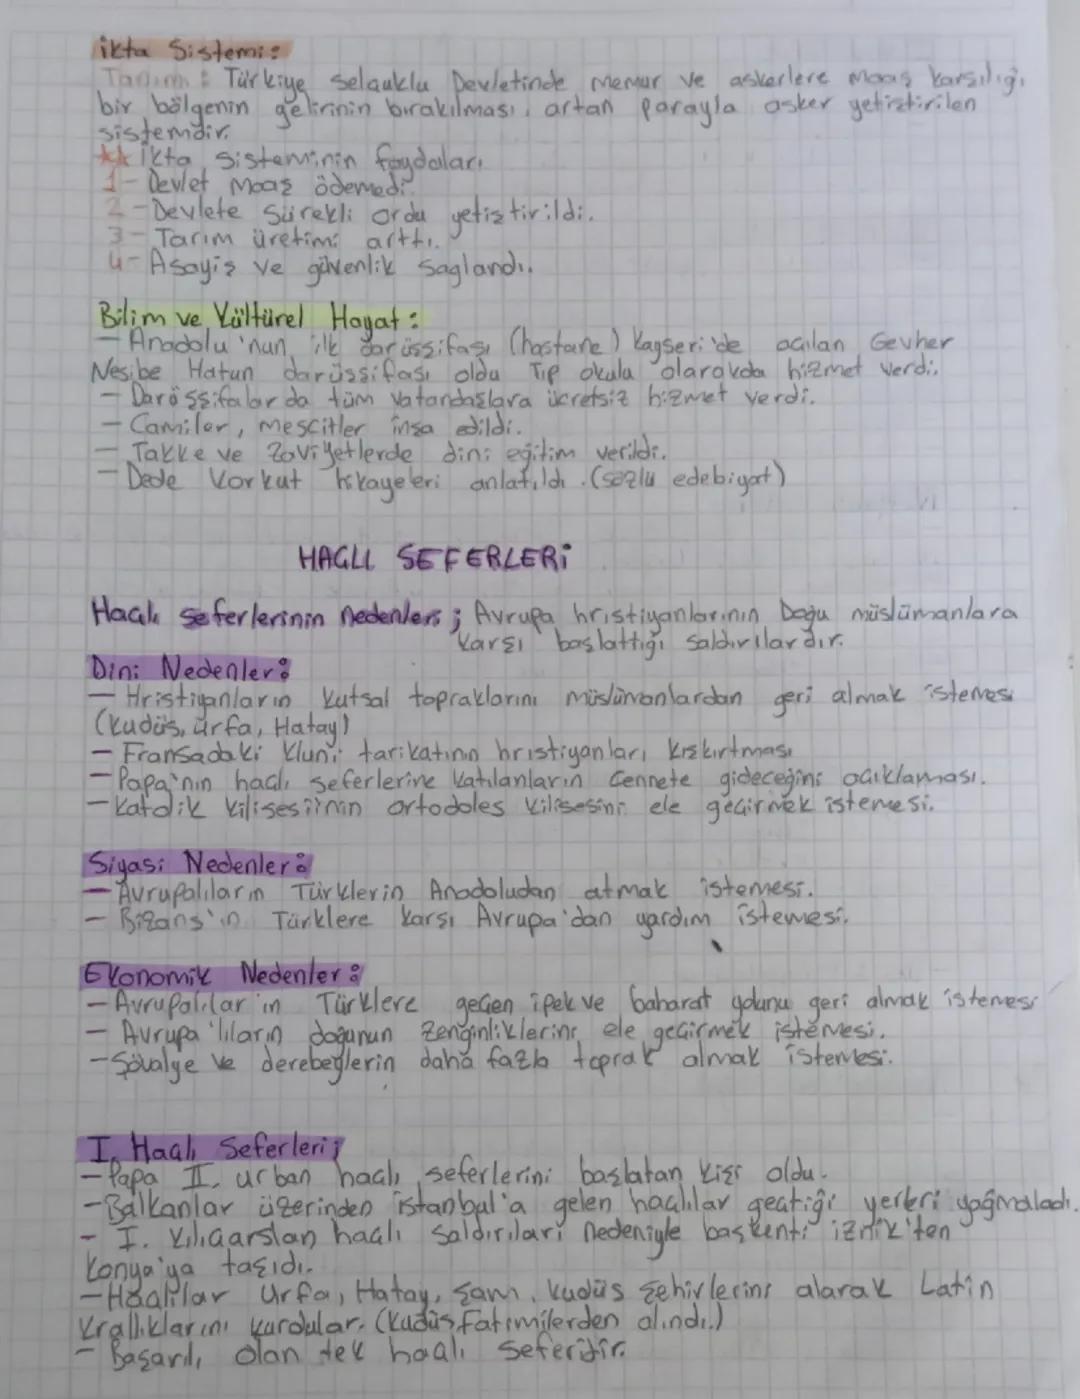 ikta Sistemi:
Tanım: Türkiye selçuklu Devletinde memur ve askerlere maaş karşılığı
bir bölgenin gelirinin bırakılması, artan parayla asker yetiştirilen
sistemdir.
** İkta sisteminin faydaları
1- Devlet maaş ödemedi.
2- Devlete sürekli ordu yetiştirildi.
3- Tarım üretimi arttı.
4- Asayiş ve güvenlik saglandı.
Bilim ve Kültürel Hayat:
- Anadolu'nun ilk darüşşifası (hastane) Kayseri'de açılan Gevher
Nesibe Hatun darüşşifası oldu Tıp okulu olarakda hizmet verdi.
- Daröşşifalar da tüm vatandaşlara ücretsiz hizmet verdi.
- Camiler, mescitler inşa edildi.
- Takke ve Zaviyetlerde dini eğitim verildi.
- Dede Korkut hikayeleri anlatıldı. (sözlü edebiyat)
HAÇLI SEFERLERİ
Haçlı seferlerinin nedenleri; Avrupa hristiyanlarının Doğu müslümanlara
karşı başlattığı saldırılardır.
Dini Nedenler:
- Hristiyanların kutsal topraklarını müslümanlardan geri almak istemesi
(kudüs, urfa, Hatay)
- Fransadaki Kluni tarikatının hristiyanları kışkırtması
- Papa'nın haçlı seferlerine katılanların Cennete gideceğini açıklaması.
- Katolik kilisesi'nin ortodoles kilisesini ele geçirmek istemesi.
Siyasi Nedenler:
- Avrupalıların Türklerin Anadoludan atmak istemesi.
- Bizans'ın Türklere karşı Avrupa'dan yardım istemesi.
Ekonomik Nedenler:
- Avrupalılar'ın Türklere geçen ipek ve baharat yolunu geri almak istemesi
- Avrupa'lıların doğunun zenginliklerini ele geçirmek istemesi.
- Şövalye ve derebeylerin daha fazla toprak almak istemesi.
I. Haçlı Seferleri;
- Papa II. urban haçlı seferlerini başlatan kişi oldu.
- Balkanlar üzerinden istanbul'a gelen haçlılar geçtiği yerleri yağmaladı.
- I. Kılıçarslan haçlı saldırıları nedeniyle başkenti iznik'ten
Konya'ya taşıdı.
- Haçlılar Urfa, Hatay, Şam, Kudüs şehirlerini alarak Latin
Krallıklarını kurdular. (Kudüs Fatımilerden alındı.)
- Başarılı olan tek haçlı seferidir.